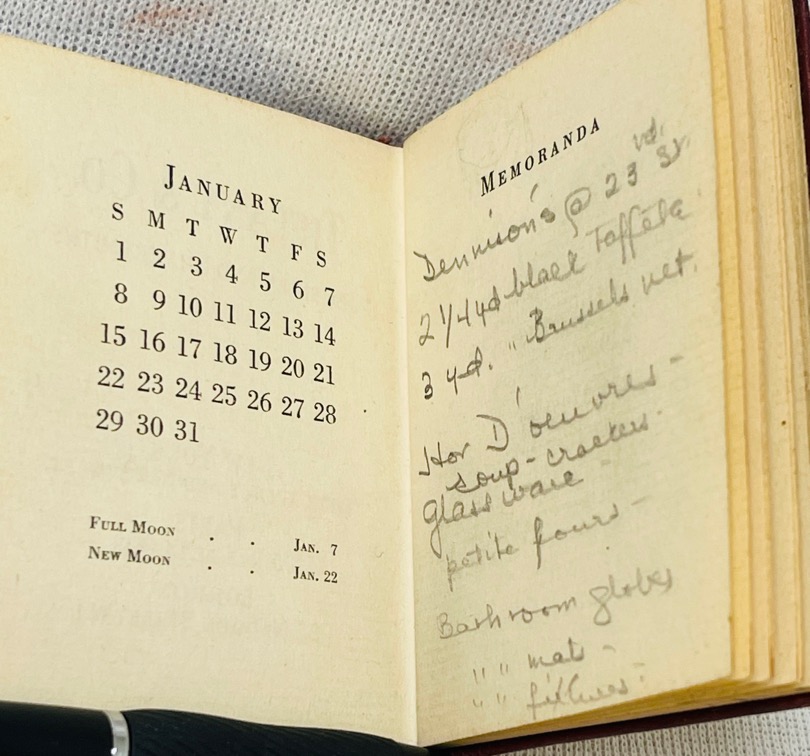 JANUARY
S M T W T F S
1 2 3 4 5 6 7
8 9 10 11 12 13 14
15 16 17 18 19 20 21
22 23 24 25 26 27 28
29 30 31
FULL MOON . . JAN. 7
NEW MOON . . JAN. 22
MEMORANDA
Dennison's @ 23
2 1/4 yd black Taffeta
3 yd. " Brussels net.
Hor D'oeuvres -
soup - crackers.
glassware
petite fours -
Bathroom globes
" " mats -
" " fixtures -